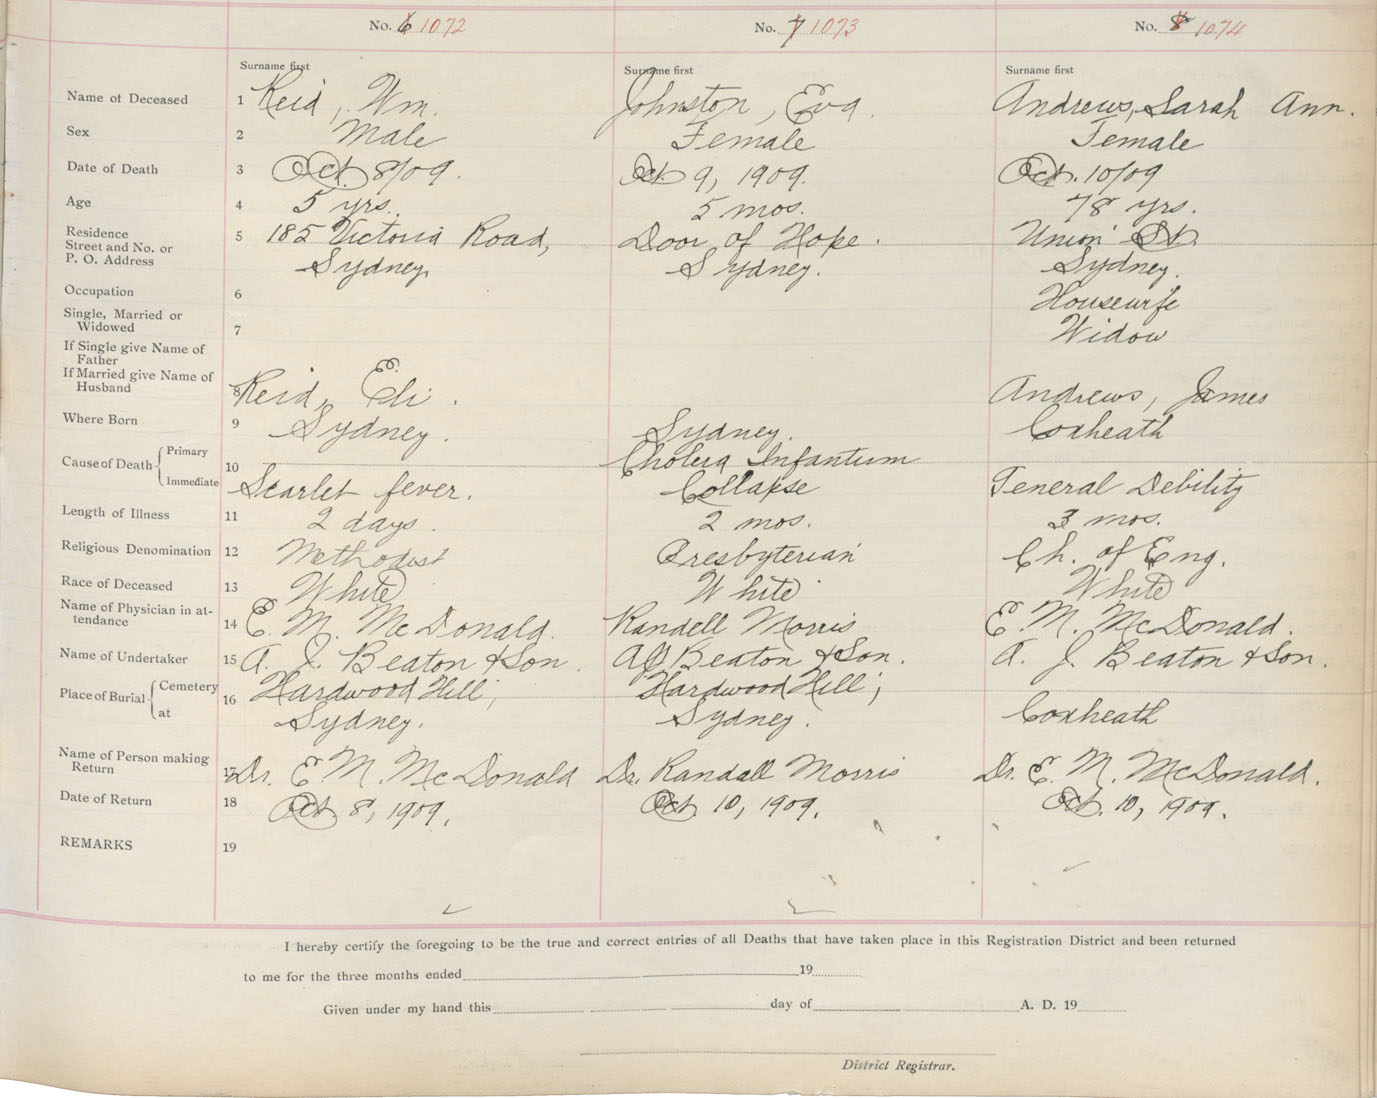 No. 6 1072 No. 7 1073 No. 8 1074
Surname first Surname first Surname first
Name of Deceased 1 Reid, Wm. Johnston, Eva. Andrews, Sarah Ann.
Sex 2 Male Female Female
Date of Death 3 Oct. 8/09. Oct 9, 1909. Oct. 10/09
Age 4 5 yrs. 5 mos. 78 yrs.
Residence
Street and No. or 5 185 Victoria Road, Door of Hope. Union St.
P. O. Address Sydney, Sydney. Sydney.
Occupation 6 Housewife
Single, Married or
Widowed 7 Widow
If Single give Name of
Father
If Married give Name of
Husband 8 Reid, Eli. Andrews, James
Where Born 9 Sydney. Sydney. Coxheath
Cause of Death Primary 10 Cholera Infantum
Immediate Scarlet fever. Collapse General Debility
Length of Illness 11 2 days. 2 mos. 3 mos.
Religious Denomination 12 Methodist Presbyterian Ch. of Eng.
Race of Deceased 13 White White White
Name of Physician in at-
tendance 14 E. M. McDonald. Randell Morris E. M. McDonald.
Name of Undertaker 15 A. J. Beaton & Son. AJ Beaton & Son. A. J. Beaton & Son.
Place of Burial Cemetery 16 Hardwood Hill, Hardwood Hill,
at Sydney. Sydney. Coxheath
Name of Person making
Return 17 Dr. E M. McDonald Dr. Randall Morris Dr. E. M. McDonald.
Date of Return 18 Oct 8, 1909. Oct. 10, 1909. Oct. 10, 1909.
REMARKS 19
I hereby certify the foregoing to be the true and correct entries of all Deaths that have taken place in this Registration District and been returned
to me for the three months ended 19
Given under my hand this day of A. D. 19
District Registrar.